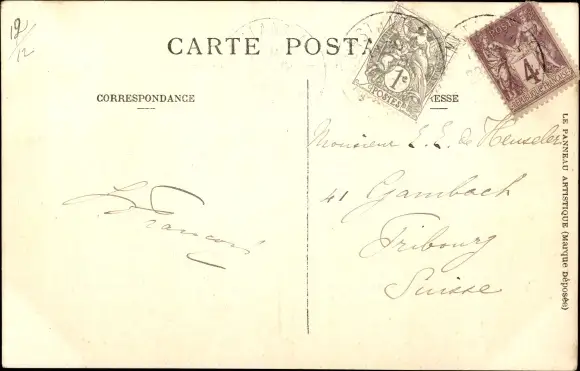 19/12
CARTE POSTA
CORRESPONDANCE
RESSE
1c
POSTES
4
Monsieur E. E. de Henseler
41 Gambach
Fribourg
Suisse
LE PANNEAU ARTISTIQUE (Marque Déposée)